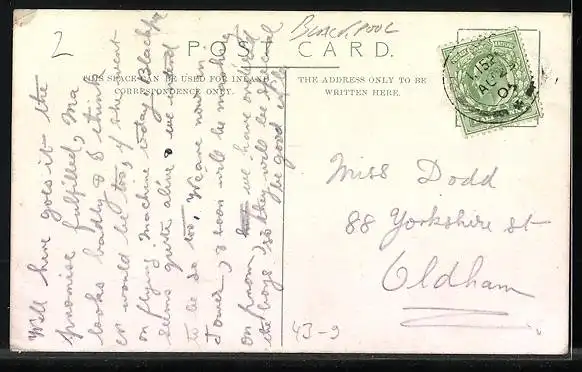 2
BLACKPOOL
POST CARD.
THIS SPACE CAN BE USED FOR INLAND
CORRESPONDENCE ONLY.
THE ADDRESS ONLY TO BE
WRITTEN HERE.
Will here goes it the
promise fulfilled, Ma
looks badly & I think
er would be too, if she went
on flying machine today. Blackpool
seems quite alive & we intend
to be so too. We are now in
Tower, & soon will be marching
on prom we have
the boys, so they will be special
be good
Miss Dodd
88 Yorkshire st
Oldham
43-9